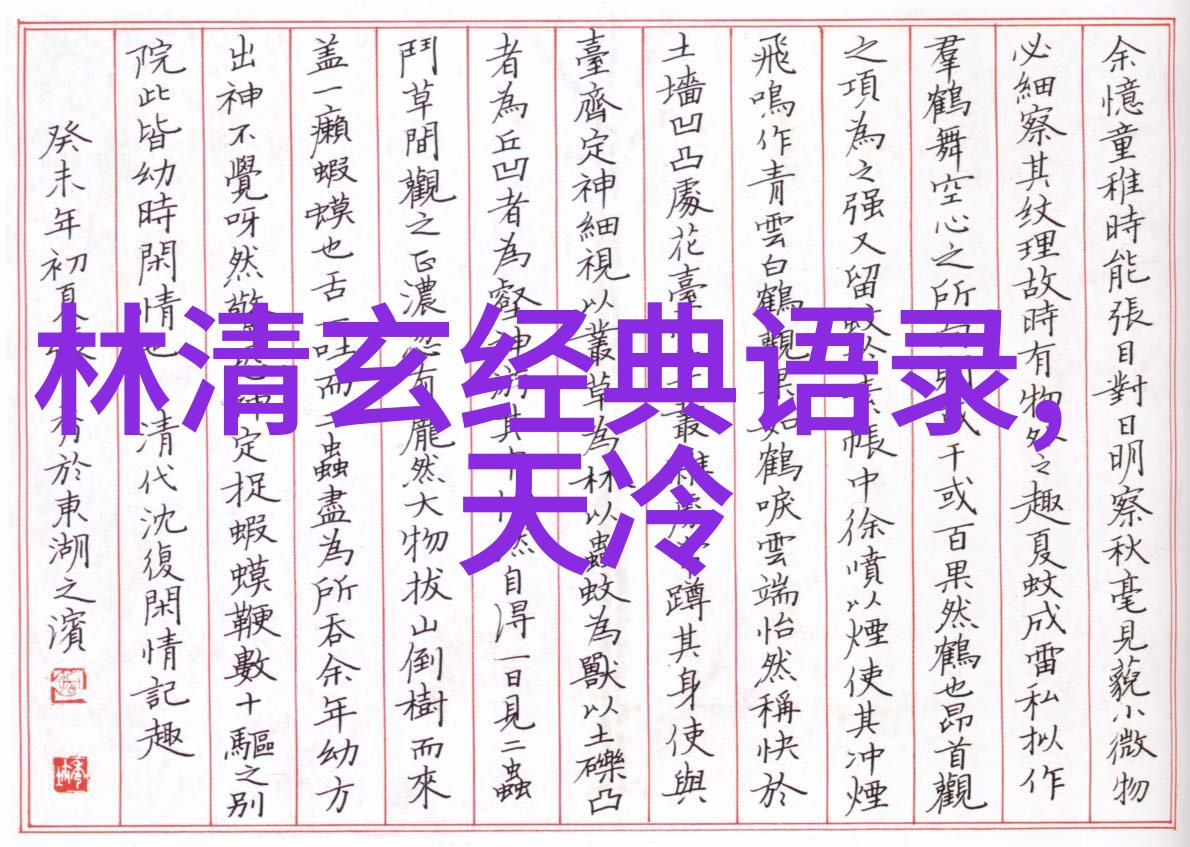 林清玄经典语录,
天冷
余憶童稚時能張目對日明察秋毫見藐小微物
必細察其纹理故時有物外之趣夏蚊成雷私拟作
羣鶴舞空心之所向則或千或百果然鶴也昂首觀
之項為之强又留蚊於素帳中徐噴以煙使其冲煙
飛鳴作青雲白鶴觀果如鶴唳雲端怡然稱快於
土墻凹凸處花臺叢雜處蹲其身使與
臺齊定神細視以叢草為林以蟲蚊為獸以土礫凸
者為丘凹者為壑神遊其中怡然自得一日見二蟲
鬥草間觀之正濃忽有龐然大物拔山倒樹而來
盖一癩蝦蟆也舌一吐而二蟲盡為所吞余年幼方
出神不覺呀然驚恐神定捉蝦蟆鞭數十驅之别
院此皆幼時閑情也 清代沈復閑情記趣
癸未年初夏於東湖之濱